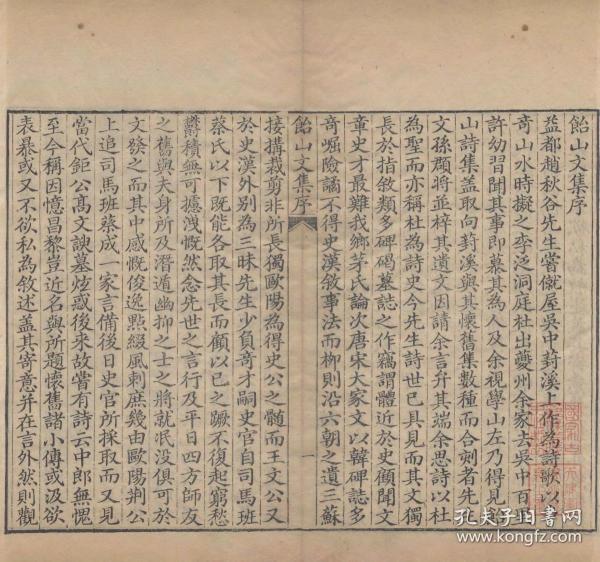 飴山文集序
益都趙秋谷先生嘗僦屋吳中葑溪上作為詩歌以
奇山水時擬之李泛洞庭杜出夔州余家去吳中百
許幼習聞其事即慕其為人及余視學山左乃得見
山詩集蓋取向葑溪與其懷舊集數種而合刻者先
文孫頵將並梓其遺文因請余言弁其端余思詩以杜
為聖而亦稱杜為詩史今先生詩世已具見而其文獨
長於指敘類多碑碣墓誌之作竊謂體近於史顧聞文
章史才最難我鄉茅氏論次唐宋大家文以韓碑誌多
奇崛險譎不得史漢敘事法而柳則沿六朝之遺三蘇
飴山文集序
一
接搆裁剪非所長獨歐陽為得史公之髓而王文公又
於史漢外別為三昧先生少負奇才嗣史官自司馬班
蔡氏以下既能各取其長而顧以已之蹶不復起窮愁
欝積無可攄洩慨然念先世之言行及平日四方師友
之舊與夫身所及潛遁幽抑之士之將就泯没俱可於
文發之而其中感慨俊逸點綴風刺庶幾由歐陽荆公
上追司馬班蔡成一家言備後日史官所採取而又見
當代鉅公髙文諛墓炫惑後來故嘗有詩云中郎無愧
至今稱因憶昌黎豈近名與所題懷舊諸小傳或汲欲
表暴或又不欲私為敘述蓋其寄意并在言外然則觀
孔夫子旧书网
www.kongfz.com